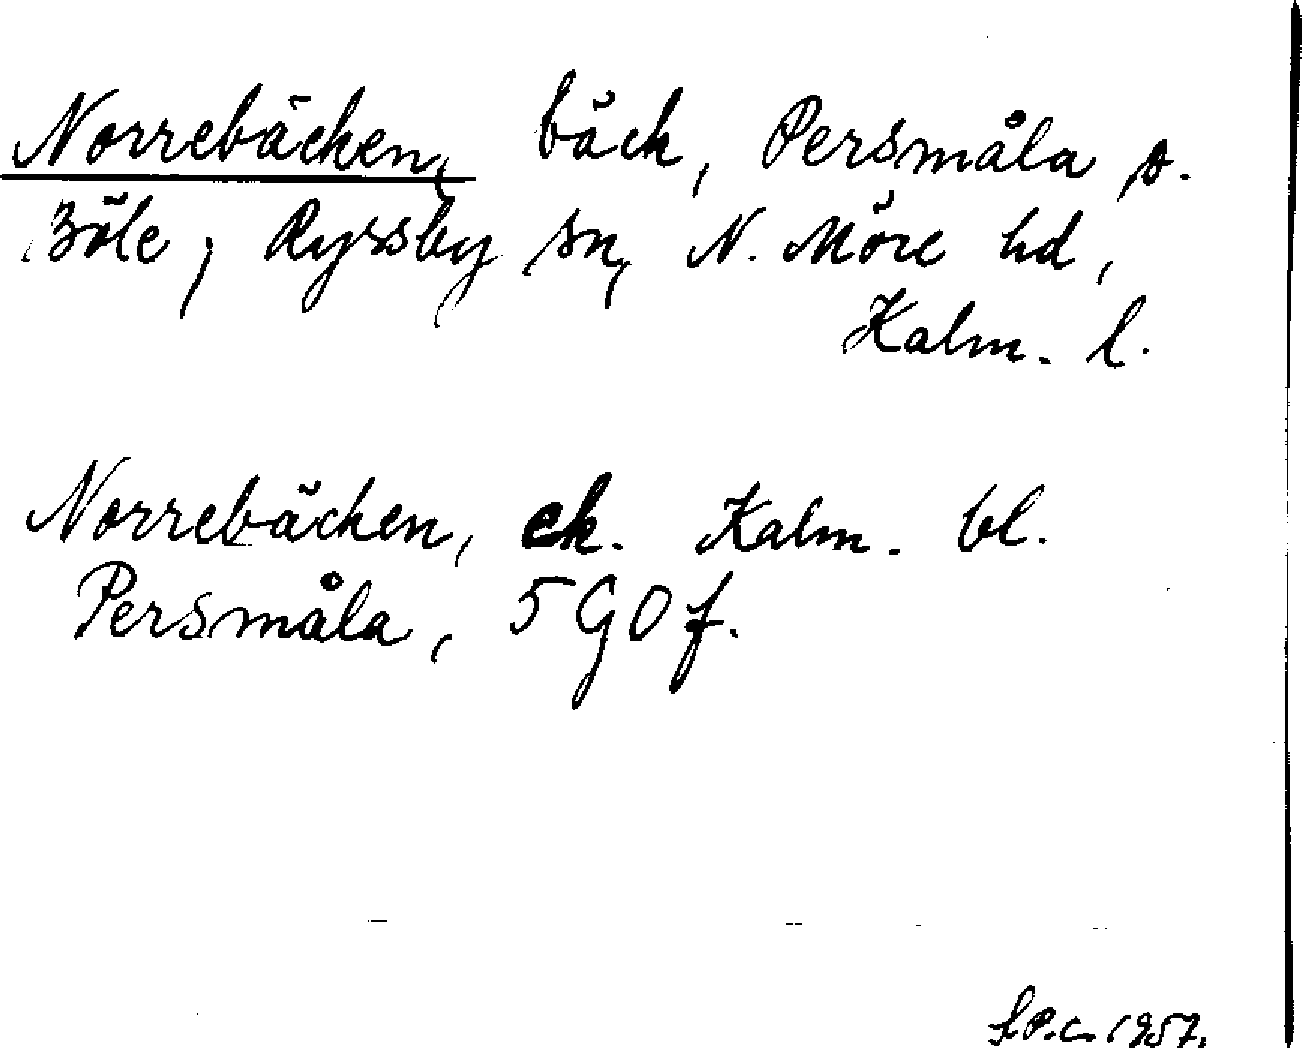 Norrebäcken, bäck, Persmåla s.
Böle, Ryssby sn, N. Möre hd,
Kalm. l.
Norrebäcken, ek. Kalm. bl.
Persmåla, 5 G O f.
1957.